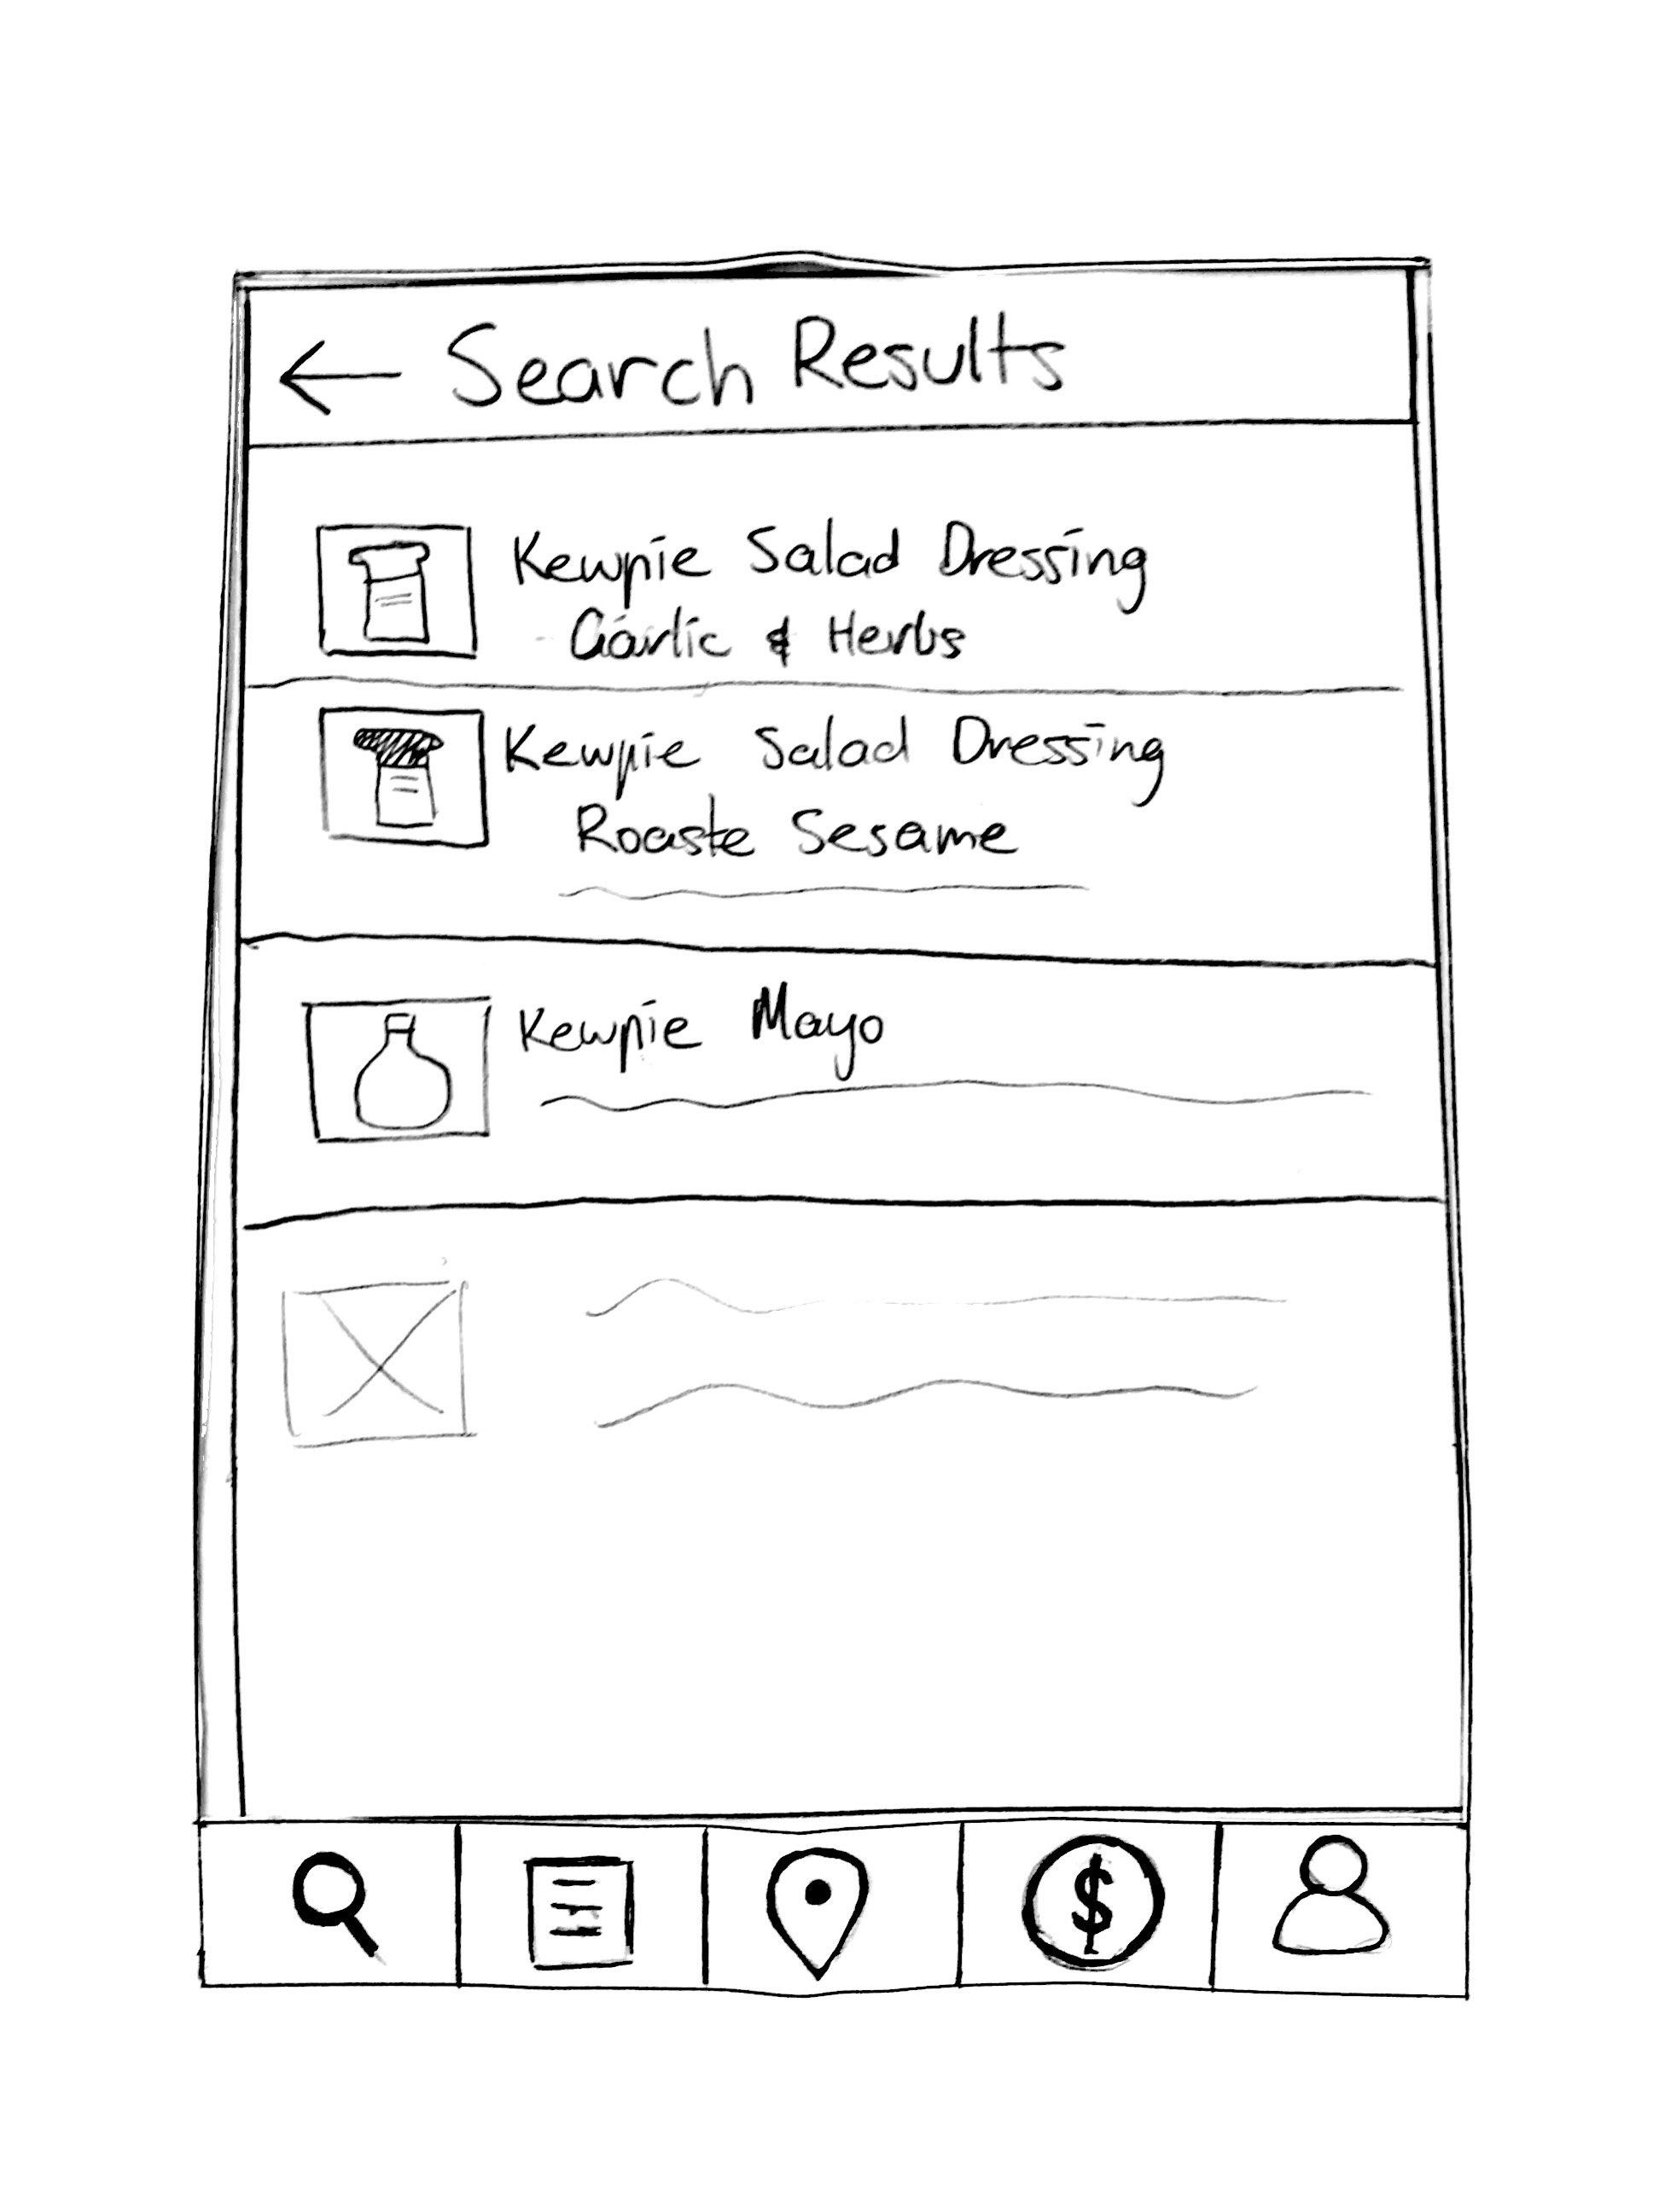 ← Search Results
Kewpie Salad Dressing
Garlic & Herbs
Kewpie Salad Dressing
Roaste Sesame
Kewpie Mayo
$